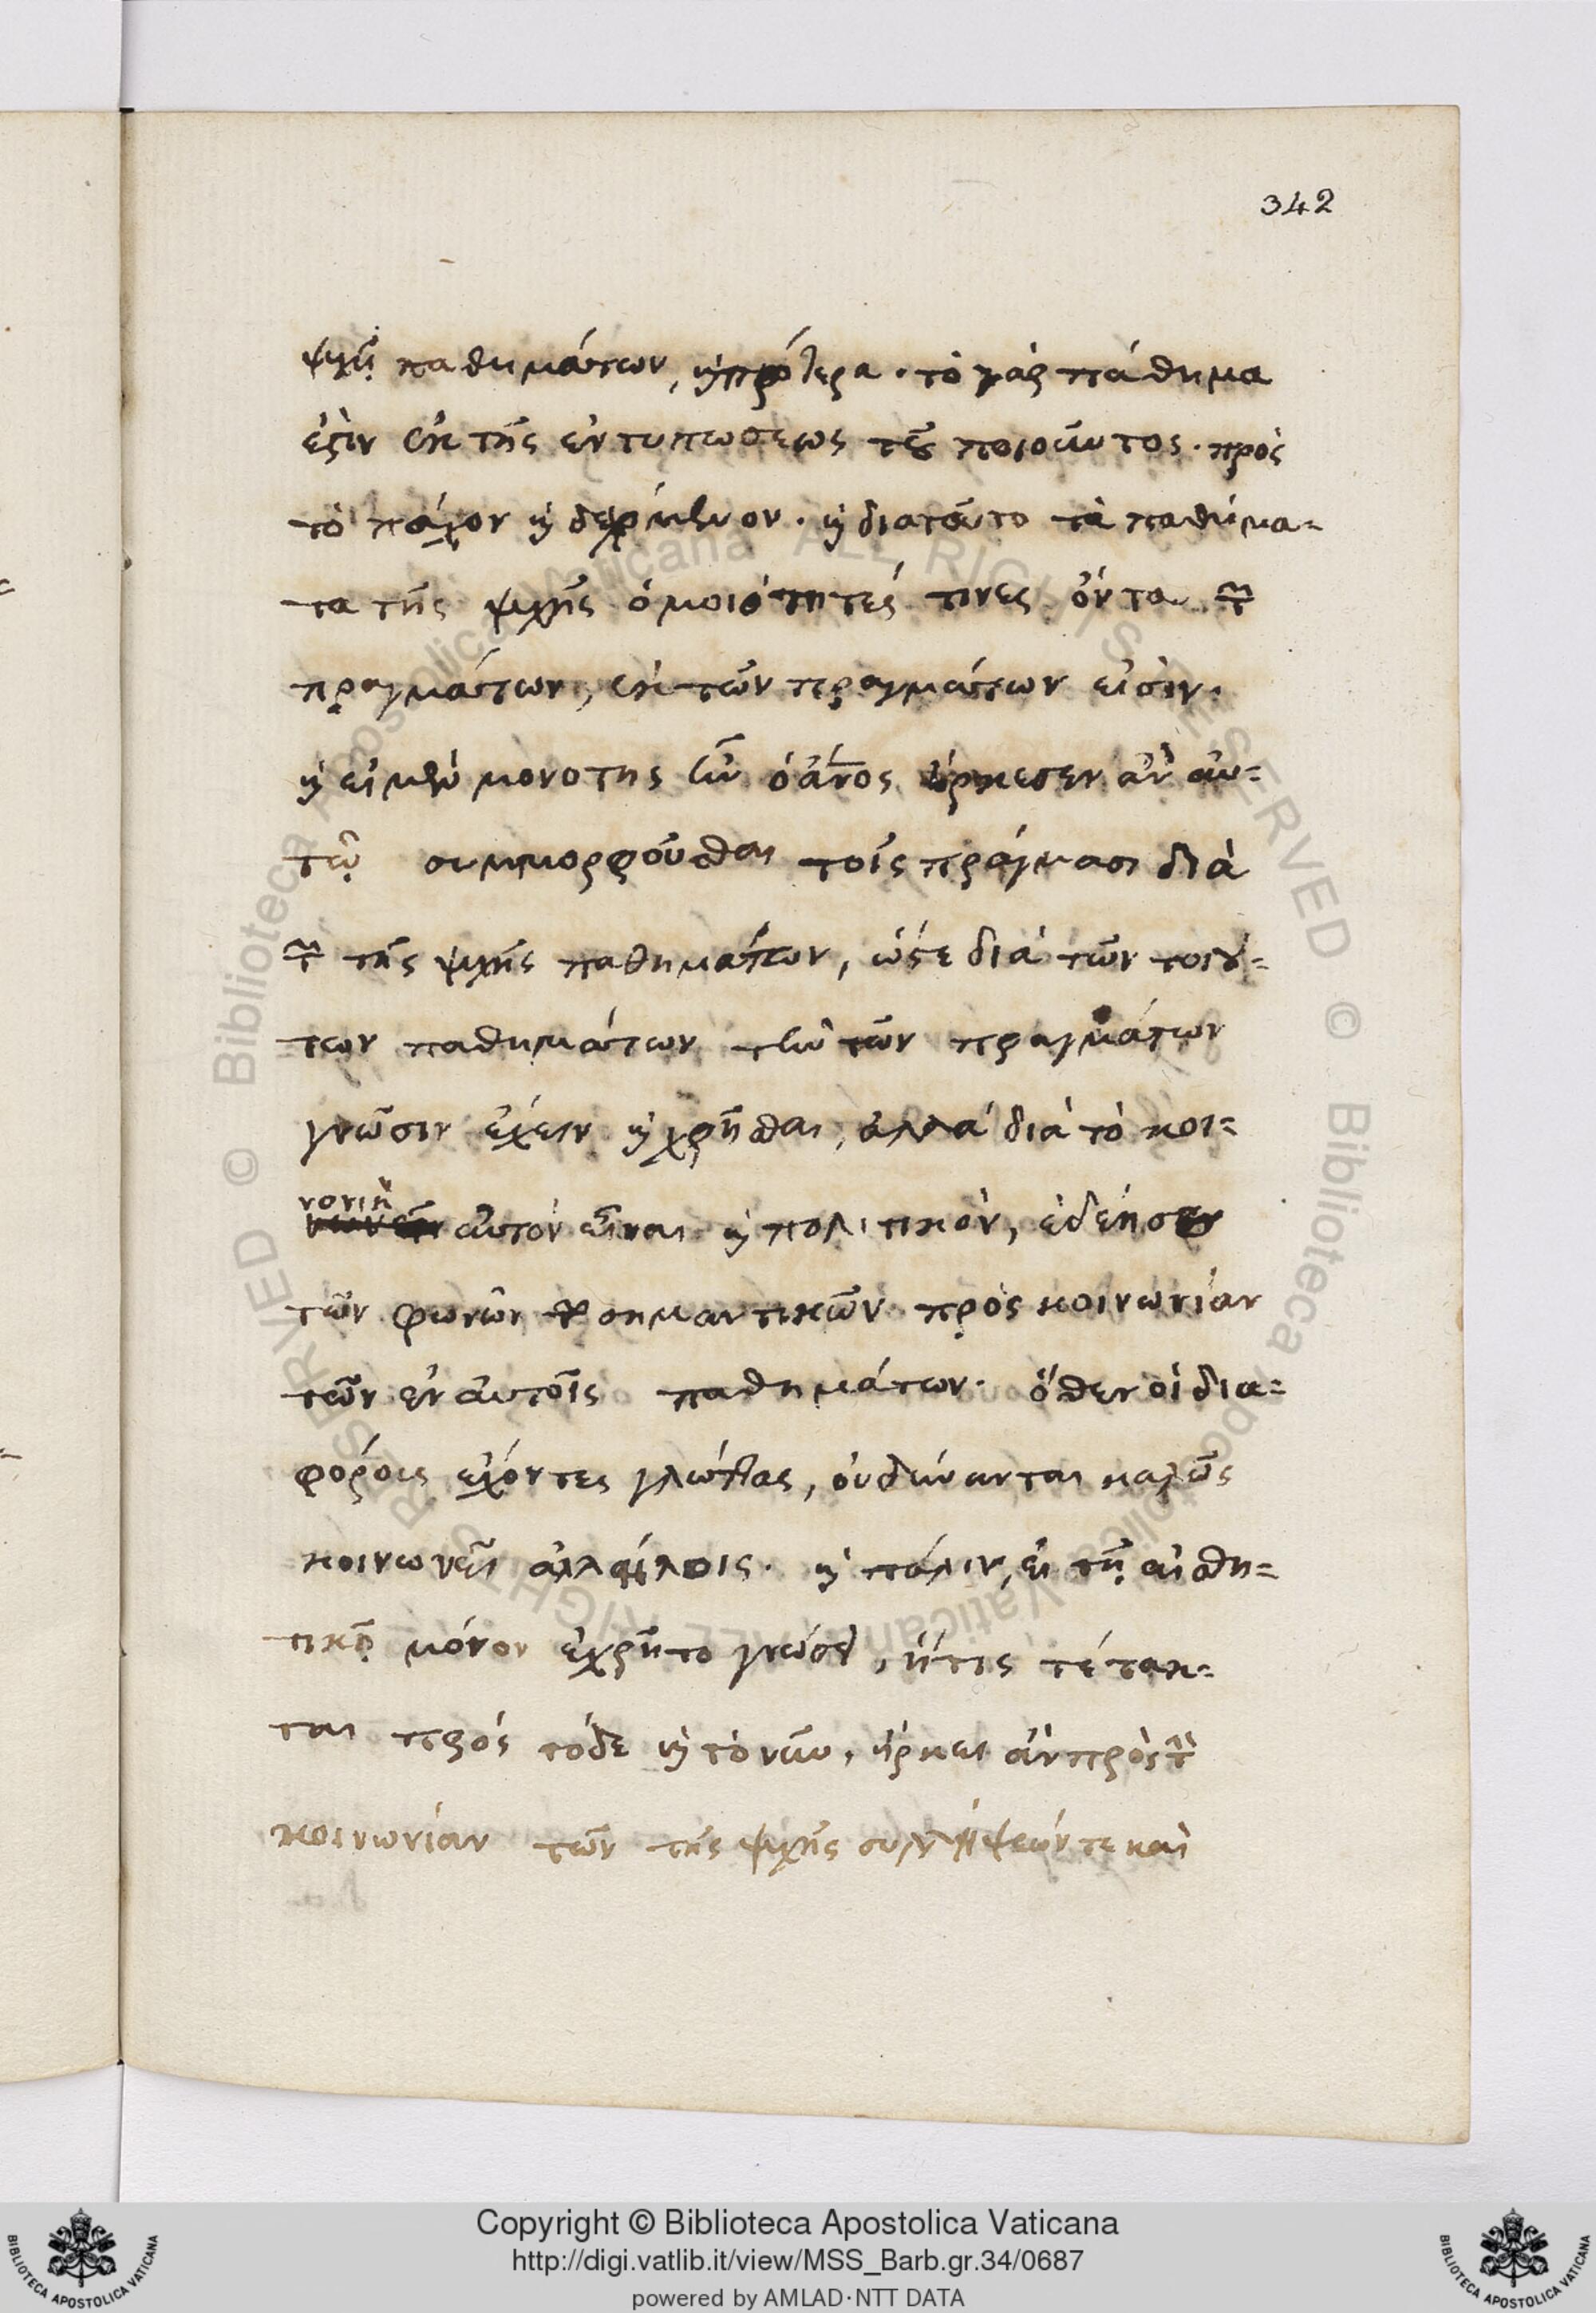 342
ψυχῇ παθημάτων, καὶ πρότερα. τὸ γὰρ πάθημα
ἐστὶν ἐκ τῆς ἐντυπώσεως τοῦ ποιοῦντος. πρὸς
τὸ πάσχον καὶ δεχόμενον. καὶ διατοῦτο τὰ παθήμα-
τα τῆς ψυχῆς ὁμοιότητές τινες ὄντα τῶν
πραγμάτων, ἐκ τῶν πραγμάτων εἰσὶν.
καὶ εἰ μὲν μονότης ἦν ὁ ἄνος ἤρκεσεν ἂν αὐ-
τῷ συμμορφοῦσθαι τοῖς πράγμασι διὰ
τῶν τῆς ψυχῆς παθημάτων, ὥστε διὰ τῶν τοιού-
των παθημάτων τὴν τῶν πραγμάτων
γνῶσιν ἔχειν καὶ χρῆσθαι, ἀλλὰ διὰ τὸ κοι-
νονικὸν
αὐτόν εἶναι καὶ πολιτικὸν, ἐδέησεν
τῶν φωνῶν σημαντικῶν πρὸς κοινωνίαν
τῶν ἐν αὐτοῖς παθημάτων. ὅθεν οἱ δια-
φόροις ἔχοντες γλώττας, οὐ δύνανται καλῶς
κοινωνεῖν ἀλλήλοις. καὶ πάλιν, εἰ τῇ αἰσθη-
τικῇ μόνον ἐχρῆτο γνώσει, ἥτις τέτακ-
ται πρὸς τόδε καὶ τὸ νῦν, ἤρκει ἂν πρὸς τὴν
κοινωνίαν τῶν τῆς ψυχῆς συλλήψεών τε καὶ
Copyright © Biblioteca Apostolica Vaticana
http://digi.vatlib.it/view/MSS_Barb.gr.34/0687
powered by AMLAD·NTT DATA